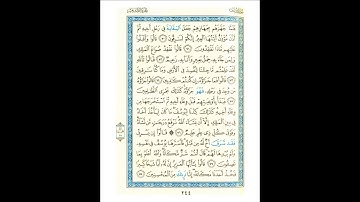 فَلَمَّا جَهَّزَهُم بِجَهَازِهِمْ جَعَلَ ٱلسِّقَايَةَ فِى رَحْلِ أَخِيهِ ثُمَّ
أَذَّنَ مُؤَذِّنٌ أَيَّتُهَا ٱلْعِيرُ إِنَّكُمْ لَسَٰرِقُونَ ٧٠ قَالُوا۟ وَأَقْبَلُوا۟
عَلَيْهِم مَّاذَا تَفْقِدُونَ ٧١ قَالُوا۟ نَفْقِدُ صُوَاعَ ٱلْمَلِكِ
وَلِمَن جَآءَ بِهِۦ حِمْلُ بَعِيرٍ وَأَنَا۠ بِهِۦ زَعِيمٌ ٧٢ قَالُوا۟
تَٱللَّهِ لَقَدْ عَلِمْتُم مَّا جِئْنَا لِنُفْسِدَ فِى ٱلْأَرْضِ وَمَا كُنَّا سَٰرِقِينَ
٧٣ قَالُوا۟ فَمَا جَزَٰٓؤُهُۥٓ إِن كُنتُمْ كَٰذِبِينَ ٧٤ قَالُوا۟ جَزَٰٓؤُهُۥ
مَن وُجِدَ فِى رَحْلِهِۦ فَهُوَ جَزَٰٓؤُهُۥ كَذَٰلِكَ نَجْزِى ٱلظَّٰلِمِينَ
٧٥ فَبَدَأَ بِأَوْعِيَتِهِمْ قَبْلَ وِعَآءِ أَخِيهِ ثُمَّ ٱسْتَخْرَجَهَا مِن
وِعَآءِ أَخِيهِ كَذَٰلِكَ كِدْنَا لِيُوسُفَ مَا كَانَ لِيَأْخُذَ أَخَاهُ
فِى دِينِ ٱلْمَلِكِ إِلَّآ أَن يَشَآءَ ٱللَّهُ نَرْفَعُ دَرَجَٰتٍ مَّن نَّشَآءُ
وَفَوْقَ كُلِّ ذِى عِلْمٍ عَلِيمٌ ٧٦ قَالُوٓا۟ إِن يَسْرِقْ
فَقَدْ سَرَقَ أَخٌ لَّهُۥ مِن قَبْلُ فَأَسَرَّهَا يُوسُفُ فِى نَفْسِهِۦ
وَلَمْ يُبْدِهَا لَهُمْ قَالَ أَنتُمْ شَرٌّ مَّكَانًا وَٱللَّهُ أَعْلَمُ بِمَا
تَصِفُونَ ٧٧ قَالُوا۟ يَٰٓأَيُّهَا ٱلْعَزِيزُ إِنَّ لَهُۥٓ أَبًا شَيْخًا كَبِيرًا
فَخُذْ أَحَدَنَا مَكَانَهُۥٓ إِنَّا نَرَىٰكَ مِنَ ٱلْمُحْسِنِينَ ٧٨
٢٤٤